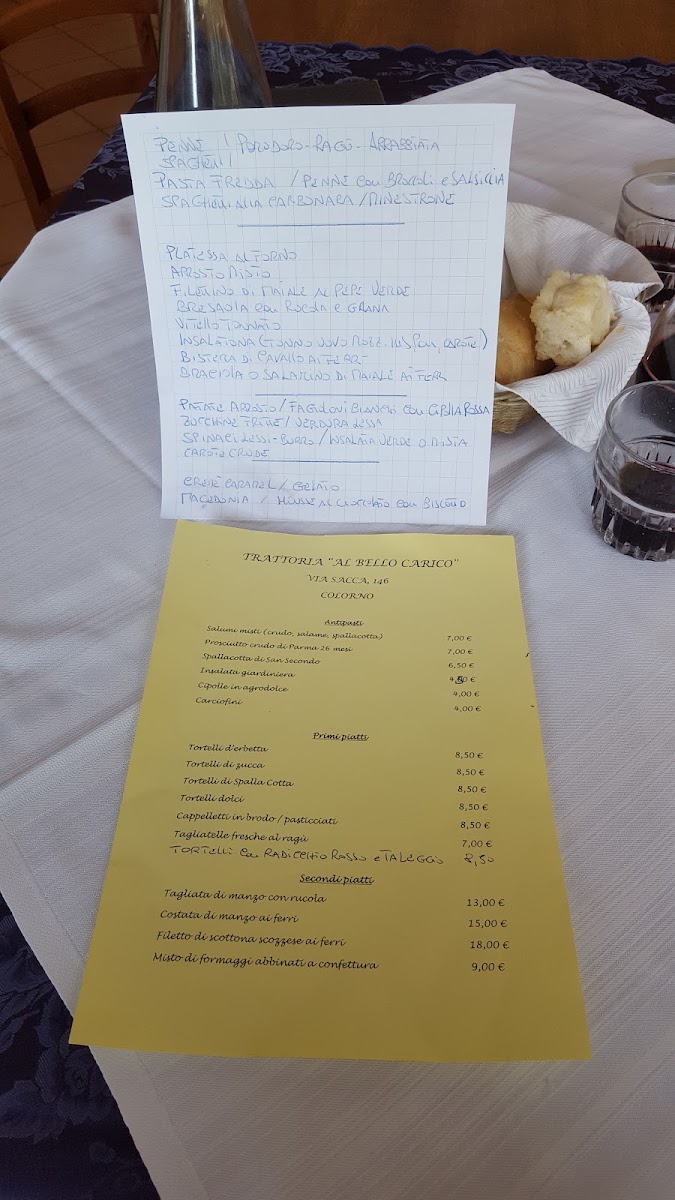 PENNE / POMODORO - RAGÙ - ARRABBIATA
SPAGHETTI
PASTA FREDDA / PENNE con BROCCOLI e SALSICCIA
SPAGHETTI ALLA CARBONARA / MINESTRONE
PLATESSA AL FORNO
ARROSTO MISTO
FILETTINO DI MAIALE AL PEPE VERDE
BRESAOLA con RUCOLA e GRANA
VITELLO TONNATO
INSALATONA (TONNO UOVO MOZZ. INS, POM, CAROTE)
BISTECCA DI CAVALLO AI FERRI
BRACIOLA O SALAMINO DI MAIALE AI FERRI
PATATE ARROSTO / FAGIOLONI BIANCHI con CIPOLLA ROSSA
ZUCCHINE FRITTE / VERDURA LESSA
SPINACI LESSI-BURRO / INSALATA VERDE O MISTA
CAROTE CRUDE
CREME CARAMEL / GELATO
MACEDONIA / MOUSSE AL CIOCCOLATO con BISCOTTO
TRATTORIA "AL BELLO CARICO"
VIA SACCA, 146
COLORNO
Antipasti
Salumi misti (crudo, salame, spallacotta) 7,00 €
Prosciutto crudo di Parma 26 mesi 7,00 €
Spallacotta di San Secondo 6,50 €
Insalata giardiniera 4,50 €
Cipolle in agrodolce 4,00 €
Carciofini 4,00 €
Primi piatti
Tortelli d'erbetta 8,50 €
Tortelli di zucca 8,50 €
Tortelli di Spalla Cotta 8,50 €
Tortelli dolci 8,50 €
Cappelletti in brodo / pasticciati 8,50 €
Tagliatelle fresche al ragù 7,00 €
TORTELLI con RADICCHIO ROSSO e TALEGGIO 8,50
Secondi piatti
Tagliata di manzo con rucola 13,00 €
Costata di manzo ai ferri 15,00 €
Filetto di scottona scozzese ai ferri 18,00 €
Misto di formaggi abbinati a confettura 9,00 €